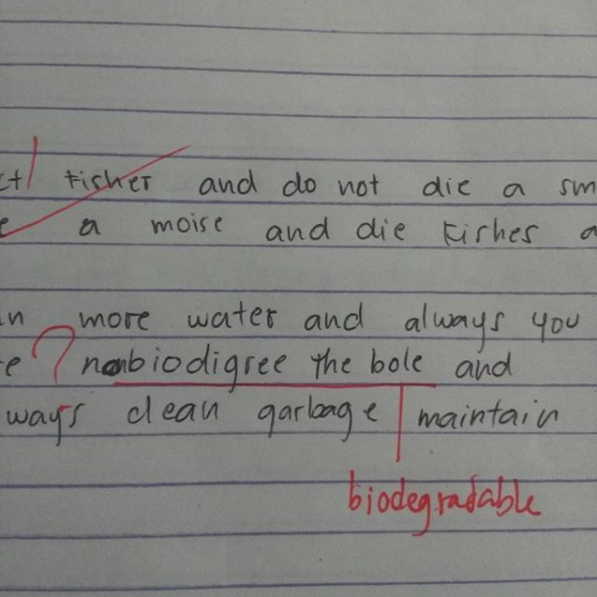 ct fisher and do not die a sm
e a moise and die fishes a
n more water and always you
e ? nonbiodigree the bole and
ways clean garbage maintain
biodegradable